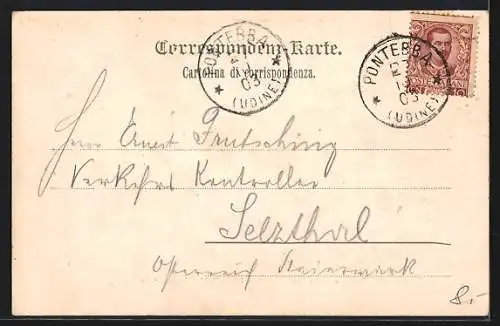 Correspondenz-Karte.
Cartolina di corrispondenza.
PONTEBBA
03
(UDINE)
PONTEBBA
03
(UDINE)
Herrn Ernst
Verkehrs Kontrollor
Selzthal
Österreich Steiermark
8.-